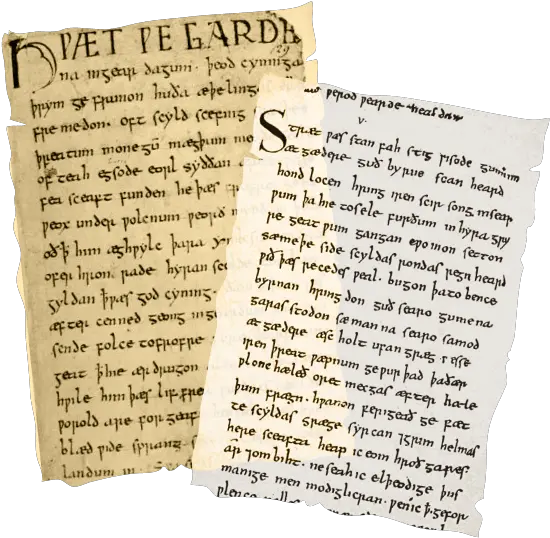 HǷÆT ǷE GARDE
na ingear dagum . þeod cyninga
þrym ge frunon huða æþeling
fremedon. oft scyld scefing
þreatum monegū mægþum mo
of teah egsode eorl syððan
fea sceaft funden he þæs
ƿeox under ƿolcnum ƿeorð
oð þ him æghƿylc þara ymb
ofer hron rade hyran sc
gyldan þ ƿæs god cyning.
æfter cenned geong inge
sende folce tofrofre
geat þ hie ær drugon
hƿile him þæs liffre
ƿorold are for geaf
blæd ƿide sprang. s
landum in.
ƿerod ƿearde heaðo
V.
Stræt ƿæs stan fah stig ƿisode gumum
æt gædere guð byrne scan heard
hond locen hring iren scir song insear
ƿum þa hie tosele furðum inhyra gry
re geat ƿum gangan cƿomon setton
sæmeþe side scyldas rondas regn heard
ƿið þæs recedes ƿeal. bugon þa to bence
byrnan hringdon guð searo gumena
garas stodon sæmanna searo samod
æt gædere æsc holt ufan græg ƿæs se
iren þreat ƿæpnum ge ƿurþad þa ðær
ƿlonc hæleð oret mecgas æfter hæle
þum frægn. hƿanon ferigeað ge fæt
te scyldas græge syrcan 7grim helmas
here sceafta heap ic eom hroðgares
ar 7om biht. ne seah ic elþeodige þus
manige men modiglicran. ƿenic þ . ge for